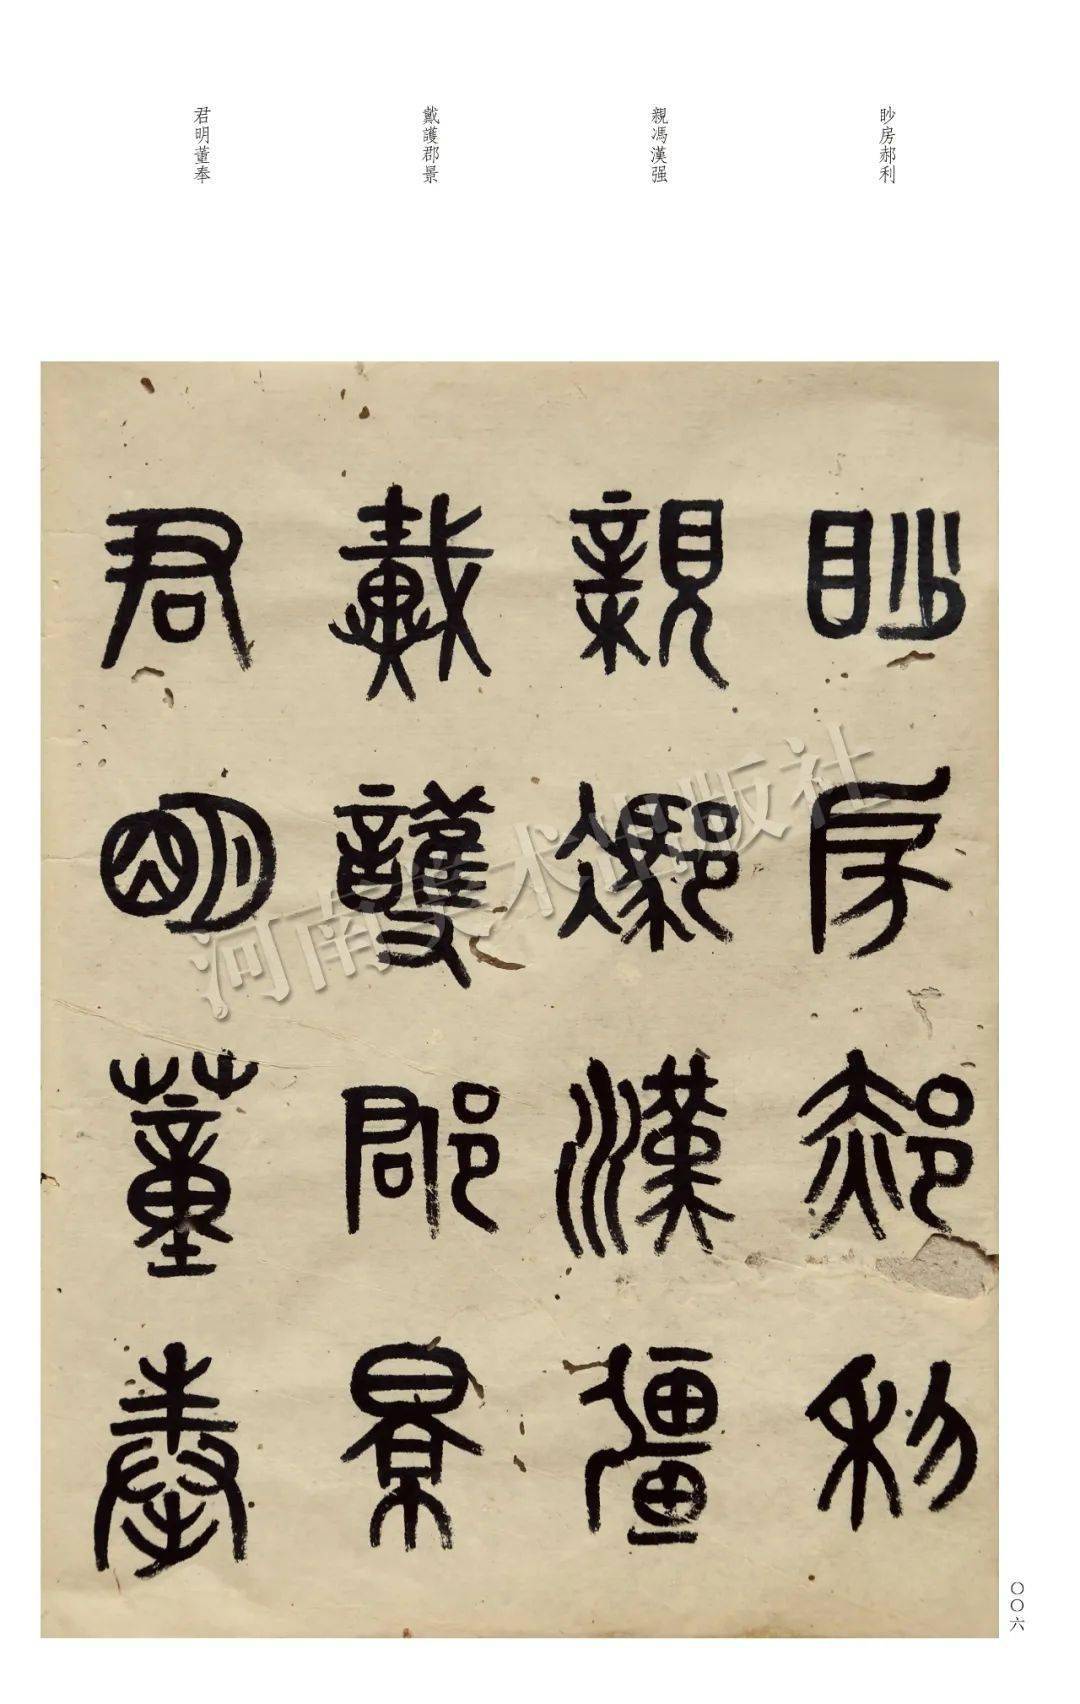 眇房郝利
親馮漢强
戴護郡景
君明董奉
眇房郝利
親馮漢彊
戴護郡景
君明董奉
河南美术出版社
〇〇六